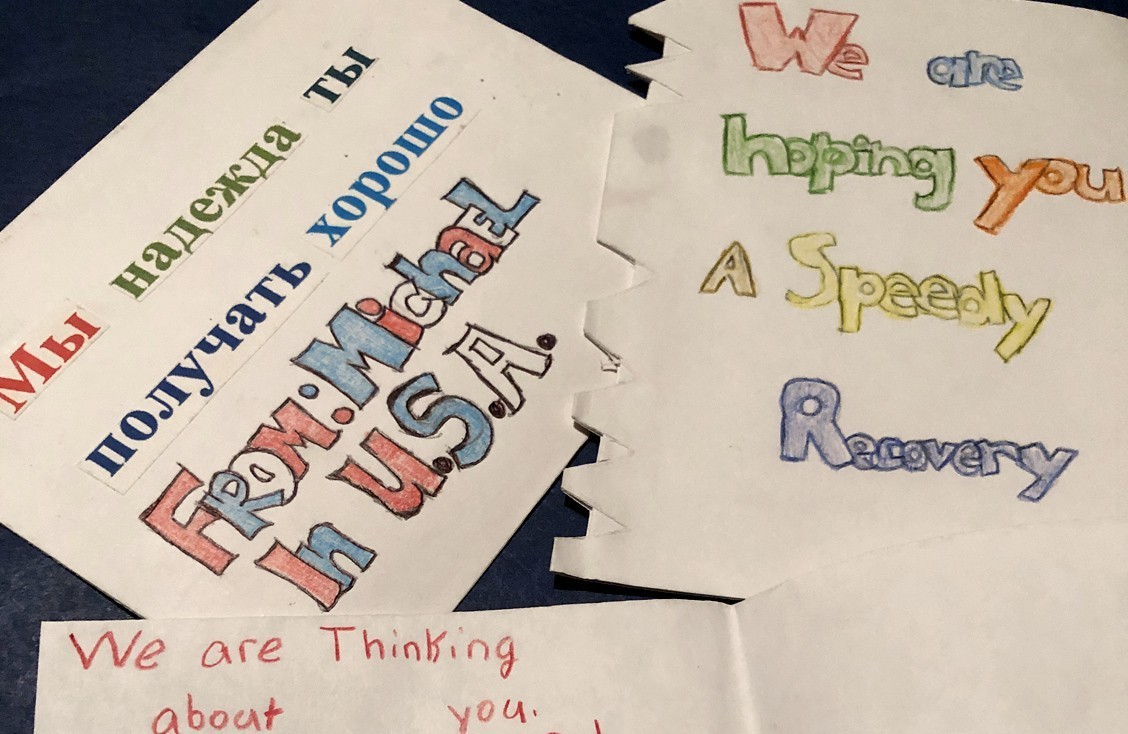 Мы надежда ты
получать хорошо
FROM: MichaEL
In U.S.A.
We are
hoping you
A Speedy
Recovery
We are Thinking
about you.